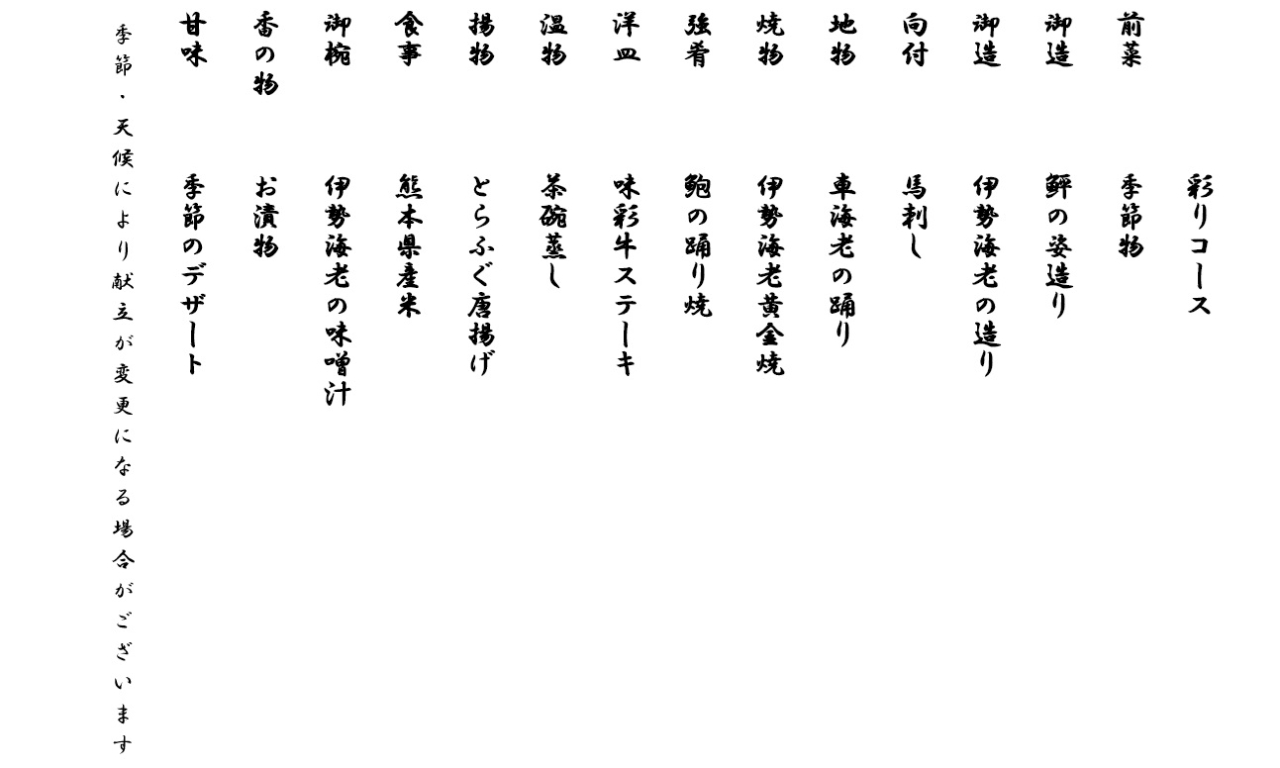 彩りコース
前菜 季節物
御造 鮃の姿造り
御造 伊勢海老の造り
向付 馬刺し
地物 車海老の踊り
焼物 伊勢海老黄金焼
強肴 鮑の踊り焼
洋皿 味彩牛ステーキ
温物 茶碗蒸し
揚物 とらふぐ唐揚げ
食事 熊本県産米
御椀 伊勢海老の味噌汁
香の物 お漬物
甘味 季節のデザート
季節・天候により献立が変更になる場合がございます